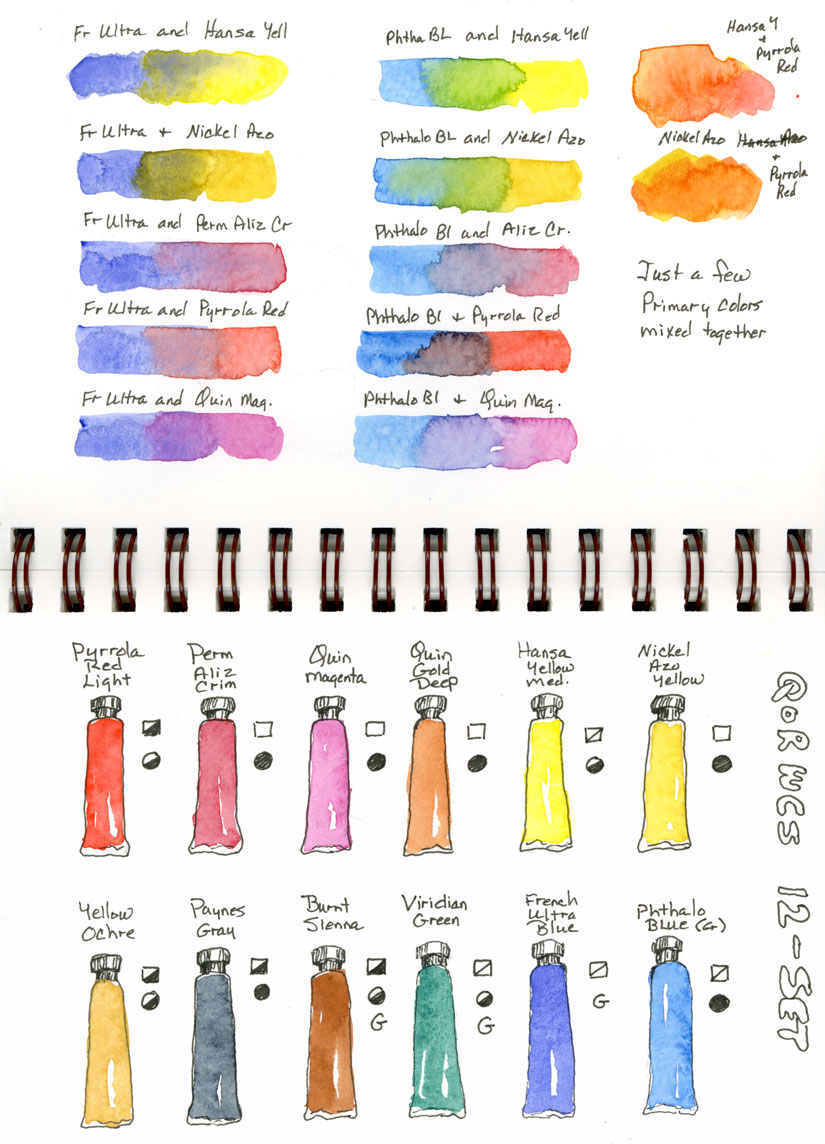 Fr Ultra and Hansa Yell
Fr Ultra + Nickel Azo
Fr Ultra and Perm Aliz Cr
Fr Ultra and Pyrrola Red
Fr Ultra and Quin Mag.
Phtha BL and Hansa Yell
Phthalo BL and Nickel Azo
Phthalo Bl and Aliz Cr.
Phthalo Bl + Pyrrola Red
Phthalo Bl + Quin Mag.
Hansa Y
+
Pyrrola
Red
Nickel Azo Hansa Azo
+
Pyrrola
Red
Just a few
Primary Colors
mixed together
Pyrrola
Red
Light
Perm
Aliz
Crim
Quin
magenta
Quin
Gold
Deep
Hansa
Yellow
med.
Nickel
Azo
Yellow
Yellow
Ochre
Paynes
Gray
Burnt
Sienna
G
Viridian
Green
G
French
Ultra
Blue
G
Phthalo
Blue (G)
QoR WCS 12-SET